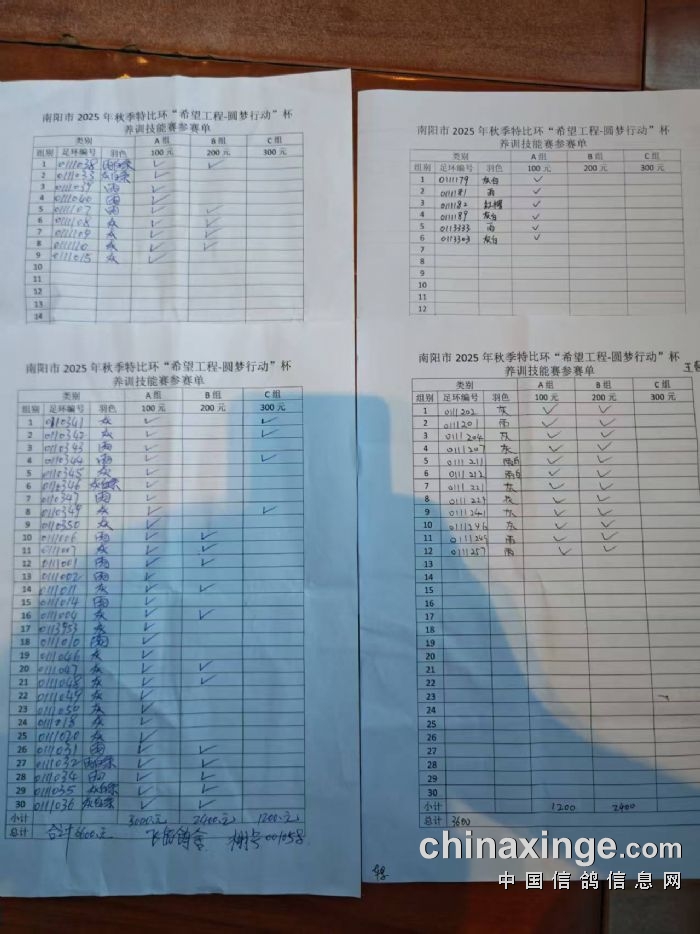 南阳市 2025 年秋季特比环“希望工程-圆梦行动”杯
养训技能赛参赛单
类别 A 组 B 组 C 组
组别 足环编号 羽色 100 元 200 元 300 元
1 0111038 雨白条 ✓ ✓
2 0111033 灰白条 ✓
3 0111039 雨 ✓
4 0111040 雨 ✓
5 0111107 雨 ✓ ✓
6 0111108 灰 ✓ ✓
7 0111109 灰 ✓ ✓
8 0111110 灰 ✓ ✓
9 0111015 灰 ✓
10
11
12
13
14
南阳市 2025 年秋季特比环“希望工程-圆梦行动”杯
养训技能赛参赛单
类别 A 组 B 组 C 组
组别 足环编号 羽色 100 元 200 元 300 元
1 0111179 灰白 ✓
2 0111181 雨 ✓
3 0111182 红楞 ✓
4 0111189 灰白 ✓
5 0113333 雨 ✓
6 0113303 灰白 ✓
7
8
9
10
11
12
南阳市 2025 年秋季特比环“希望工程-圆梦行动”杯
养训技能赛参赛单
类别 A 组 B 组 C 组
组别 足环编号 羽色 100 元 200 元 300 元
1 0110341 灰 ✓ ✓
2 0110342 灰 ✓ ✓
3 0110343 雨 ✓
4 0110344 雨 ✓ ✓
5 0110345 灰 ✓
6 0110346 灰白条 ✓
7 0110347 雨 ✓
8 0110349 灰 ✓ ✓
9 0110350 灰 ✓
10 0111006 雨 ✓ ✓
11 0111007 灰 ✓ ✓
12 0111001 雨 ✓ ✓
13 0111002 雨 ✓
14 0111011 灰 ✓ ✓
15 0111014 雨 ✓
16 0111004 灰 ✓ ✓
17 0113953 灰 ✓
18 0111010 雨 ✓
19 0111046 灰 ✓
20 0111047 灰 ✓ ✓
21 0111048 灰 ✓ ✓
22 0111049 灰 ✓
23 0111050 灰 ✓
24 0111018 灰 ✓
25 0111020 灰 ✓
26 0111031 雨 ✓ ✓
27 0111032 雨白条 ✓ ✓
28 0111034 雨 ✓ ✓
29 0111035 灰白条 ✓ ✓
30 0111036 灰白条 ✓ ✓
小计 3000元 2400元 1200元
总计 合计6600元 鸽舍 棚号001058
南阳市 2025 年秋季特比环“希望工程-圆梦行动”杯
养训技能赛参赛单
王
类别 A 组 B 组 C 组
组别 足环编号 羽色 100 元 200 元 300 元
1 0111202 灰 ✓ ✓
2 0111201 雨 ✓ ✓
3 0111204 灰 ✓ ✓
4 0111207 灰 ✓ ✓
5 0111211 雨白 ✓ ✓
6 0111212 雨白 ✓ ✓
7 0111221 灰 ✓ ✓
8 灰 ✓ ✓
9 0111241 灰 ✓ ✓
10 0111246 灰 ✓ ✓
11 0111249 雨 ✓ ✓
12 0111257 雨 ✓ ✓
13
14
15
16
17
18
19
20
21
22
23
24
25
26
27
28
29
30
小计 1200 2400
总计 3600
chinaxinge.com
中国信鸽信息网